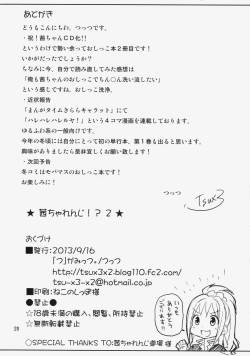 あとがき
どうもこんにちわ、つっつです。
・祝！茜ちゃんCD化！！
というわけで勢い余っておしっこ本2冊目です！
いかがだったでしょうか？
ちなみに今、自分で読み返してみた感想は
「俺も茜ちゃんのおしっこでちん○ん洗い流したい」
という感じですね。おしっこ洗浄。
・近状報告
「まんがタイムきららキャラット」にて
「ハレハレハレルヤ！」という4コマ漫画を連載しております。
ゆるふわ系の一般向けです。
今年の冬頃には自分にとって初の単行本、第1巻も出ると思います。
興味がありましたら是非宜しくお願い致します！
・次回予告
冬コミはモバマスのおしっこ本です！
お楽しみに！
つっつ
tsux3
★茜ちゃれんじ！？2★
おくづけ
■発行:2013/9/16
「つ」がみっつ。/つっつ
http://tsux3x2.blog110.fc2.com/
tsu-x3-x2@hotmail.co.jp
■印刷:ねこのしっぽ様
●禁止●
☆18歳未満の購入、閲覧、所持禁止
☆無断転載禁止
○SPECIAL THANKS TO:茜ちゃれんじ劇場 様
お買い上げ
ありがとう
ございます!!
28